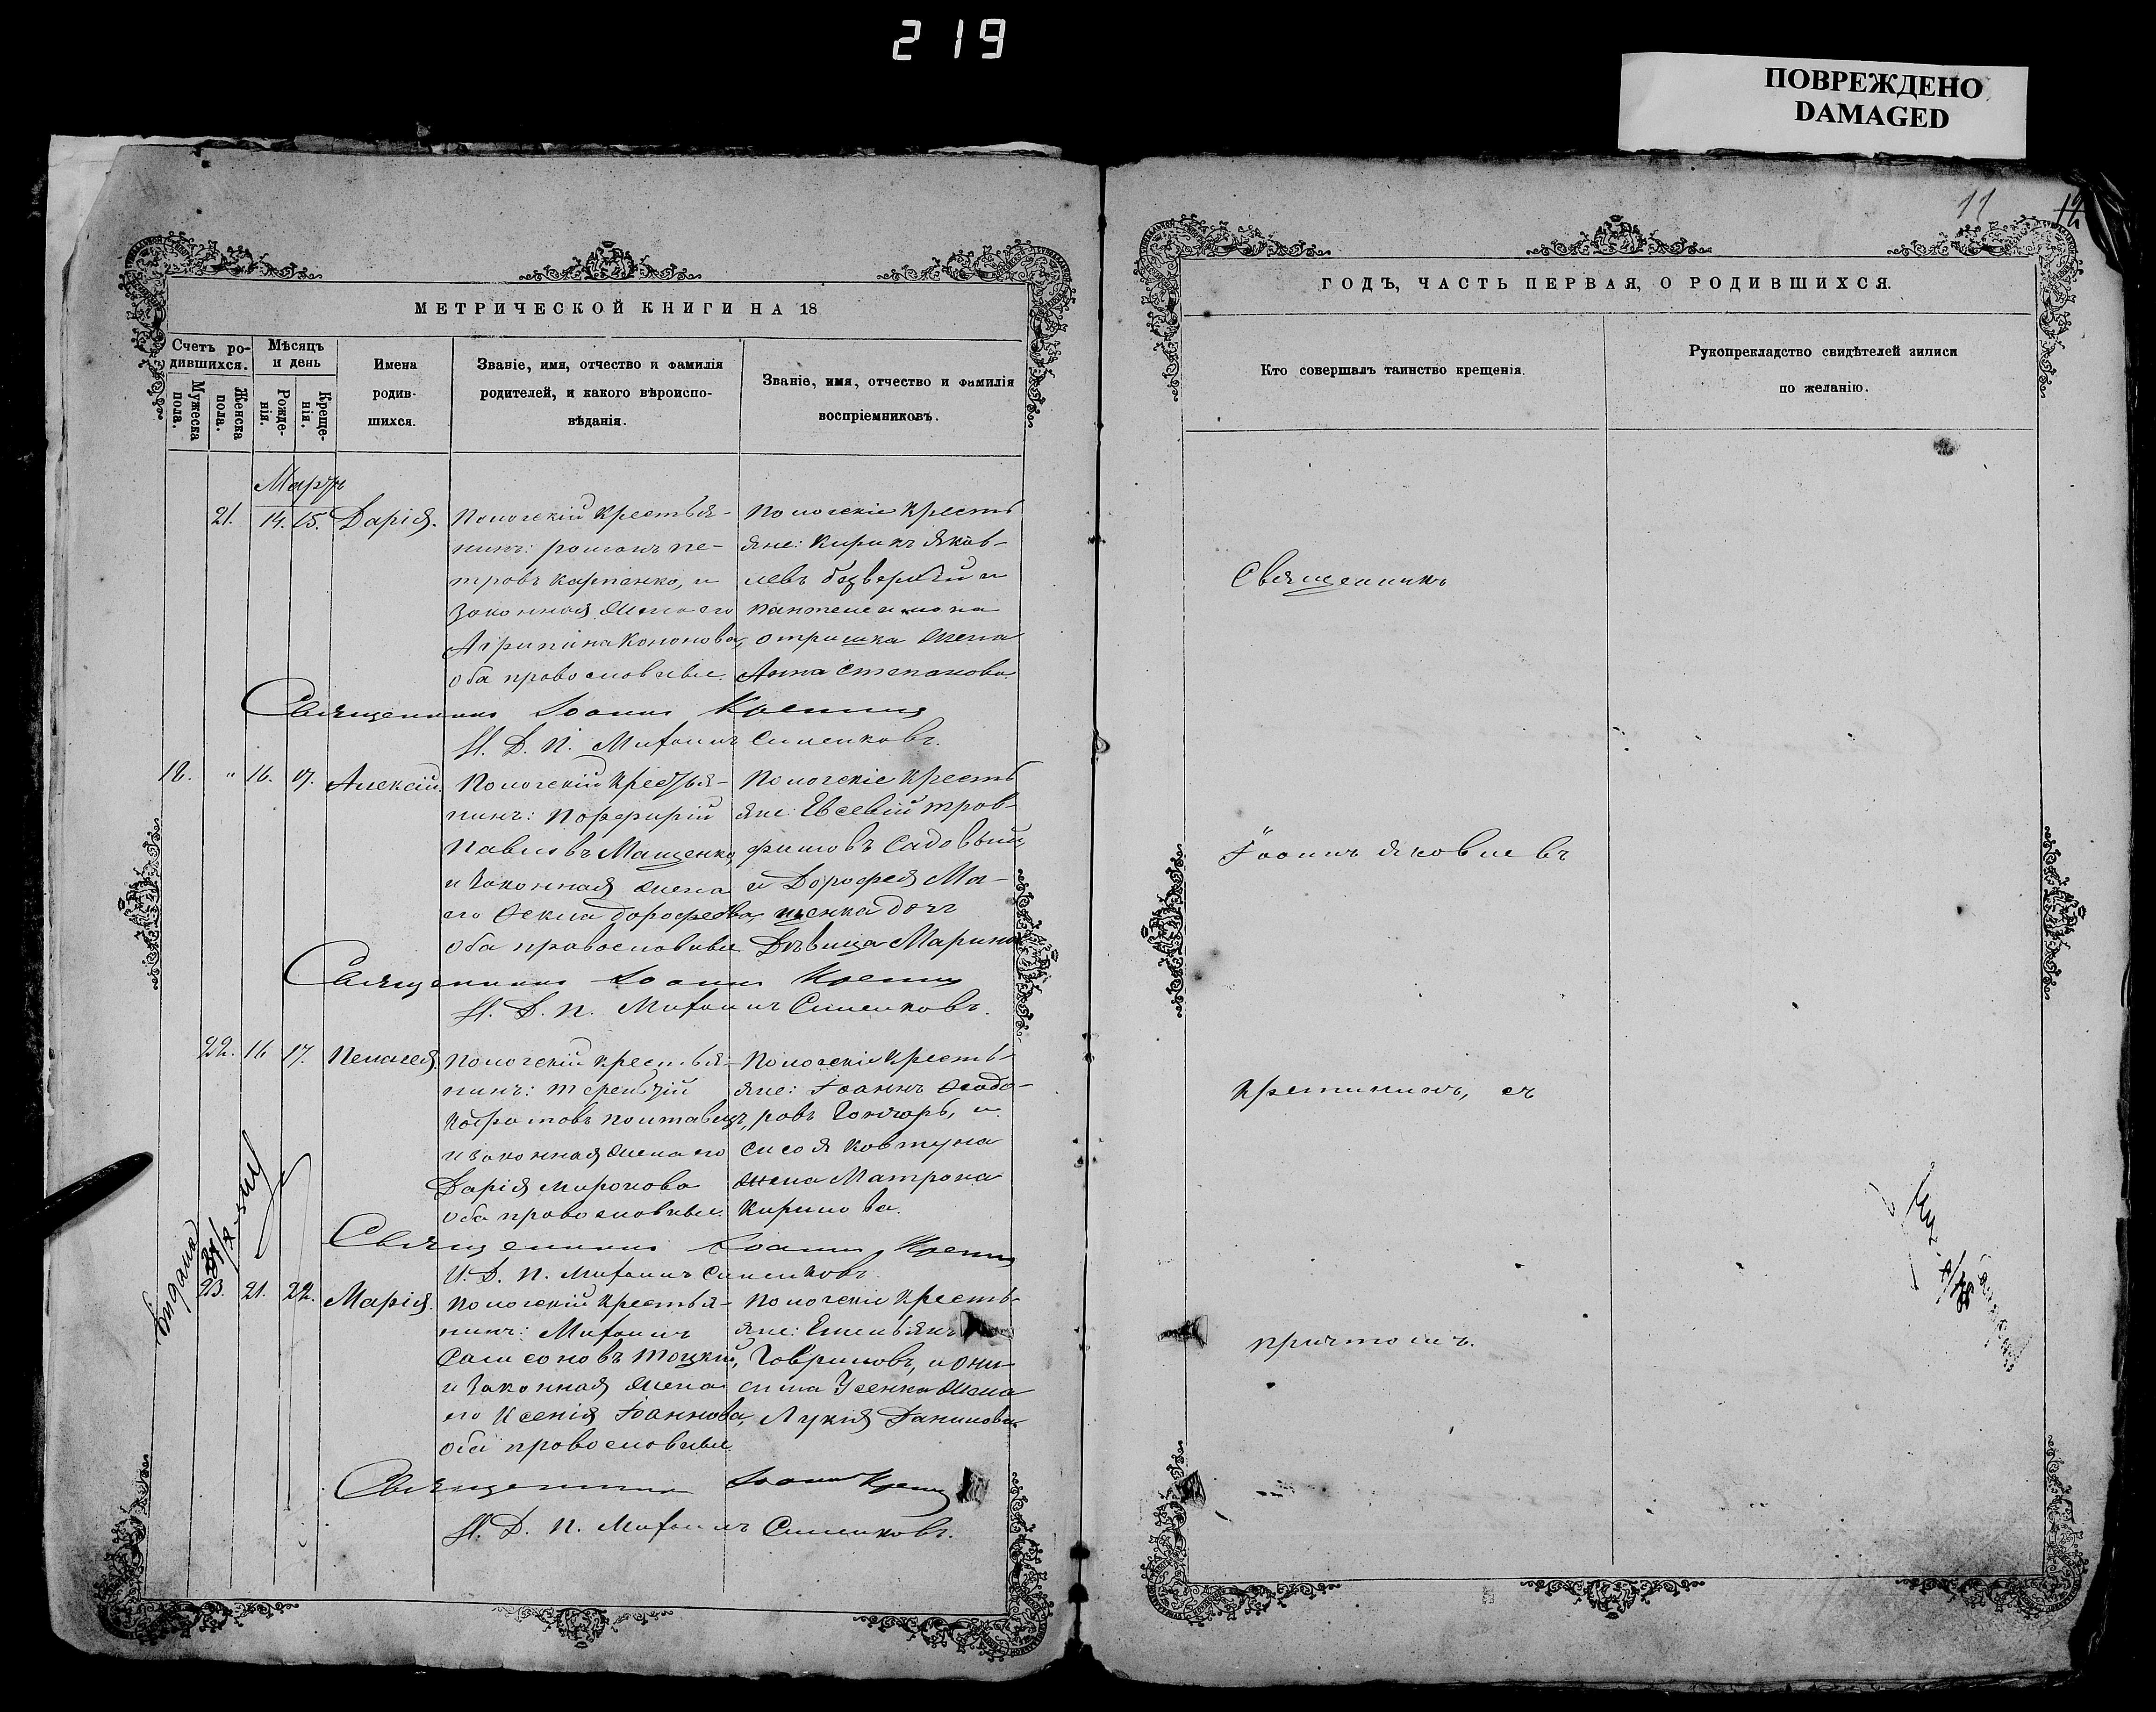 219
ПОВРЕЖДЕНО
DAMAGED
11
МЕТРИЧЕСКОЙ КНИГИ НА 18
Счетъ ро-
дившихся.
Мужеска
пола.
Женска
пола.
Мѣсяцъ
и день
Рожде-
нія.
Креще-
нія.
Имена
родив-
шихся.
Званіе, имя, отчество и фамилія
родителей, и какого вѣроиспо-
вѣданія.
Званіе, имя, отчество и фамилія
воспріемниковъ.
Мартъ
21. 14. 15. Дарія.
Пологскій крестья-
нинъ: романъ пе-
тровъ карпенко, и
законная жена его
Агрипина Кононова,
оба православные.
Пологскіе кресть
яне: Кирикъ яков-
левъ безверхій и
пантелеимона
отришка жена
Анна Степанова
Священникъ Іоаннъ
И. Д. П. Михаилъ Симонковъ.
12. " 16. 17. Алексій
Пологскій крестья-
нинъ: Порфирій
Павловъ Мащенко,
и законная жена
его Ѳекла дорофеева,
оба православные
Пологскіе кресть
яне: Евсевій троф-
фимовъ Садовый,
и Дорофея Ма-
щенка дочь
Дѣвица Марина
Священникъ Іоаннъ
И. Д. П. Михаилъ
22. 16 17. Пелагея.
Пологскій крестья-
нинъ: терентій
и законная жена его
Дарія миронова
оба православные.
Пологскіе кресть-
яне: Іоаннъ Ѳеодо-
ровъ Гончаръ, и
сисоя ковтуна
жена Матрона
Кирилова.
Священникъ Іоаннъ
И. Д. П. Михаилъ
23. 21. 22. Марія.
Пологскій крестья-
нинъ: Михаилъ
Самсоновъ тоцкій,
и законная жена
его Ксенія Іоаннова,
оба православные
Пологскіе кресть-
яне: Емельянъ
Гавриловъ, и они-
сима Усенка жена
Лукія Данилова
Священникъ Іоаннъ
И. Д. П. Михаилъ
ГОДЪ, ЧАСТЬ ПЕРВАЯ, О РОДИВШИХСЯ.
Кто совершалъ таинство крещенія.
Рукоприкладство свидѣтелей записи
по желанію.
Священникъ
Іоаннъ яковлевъ
съ
причтомъ.